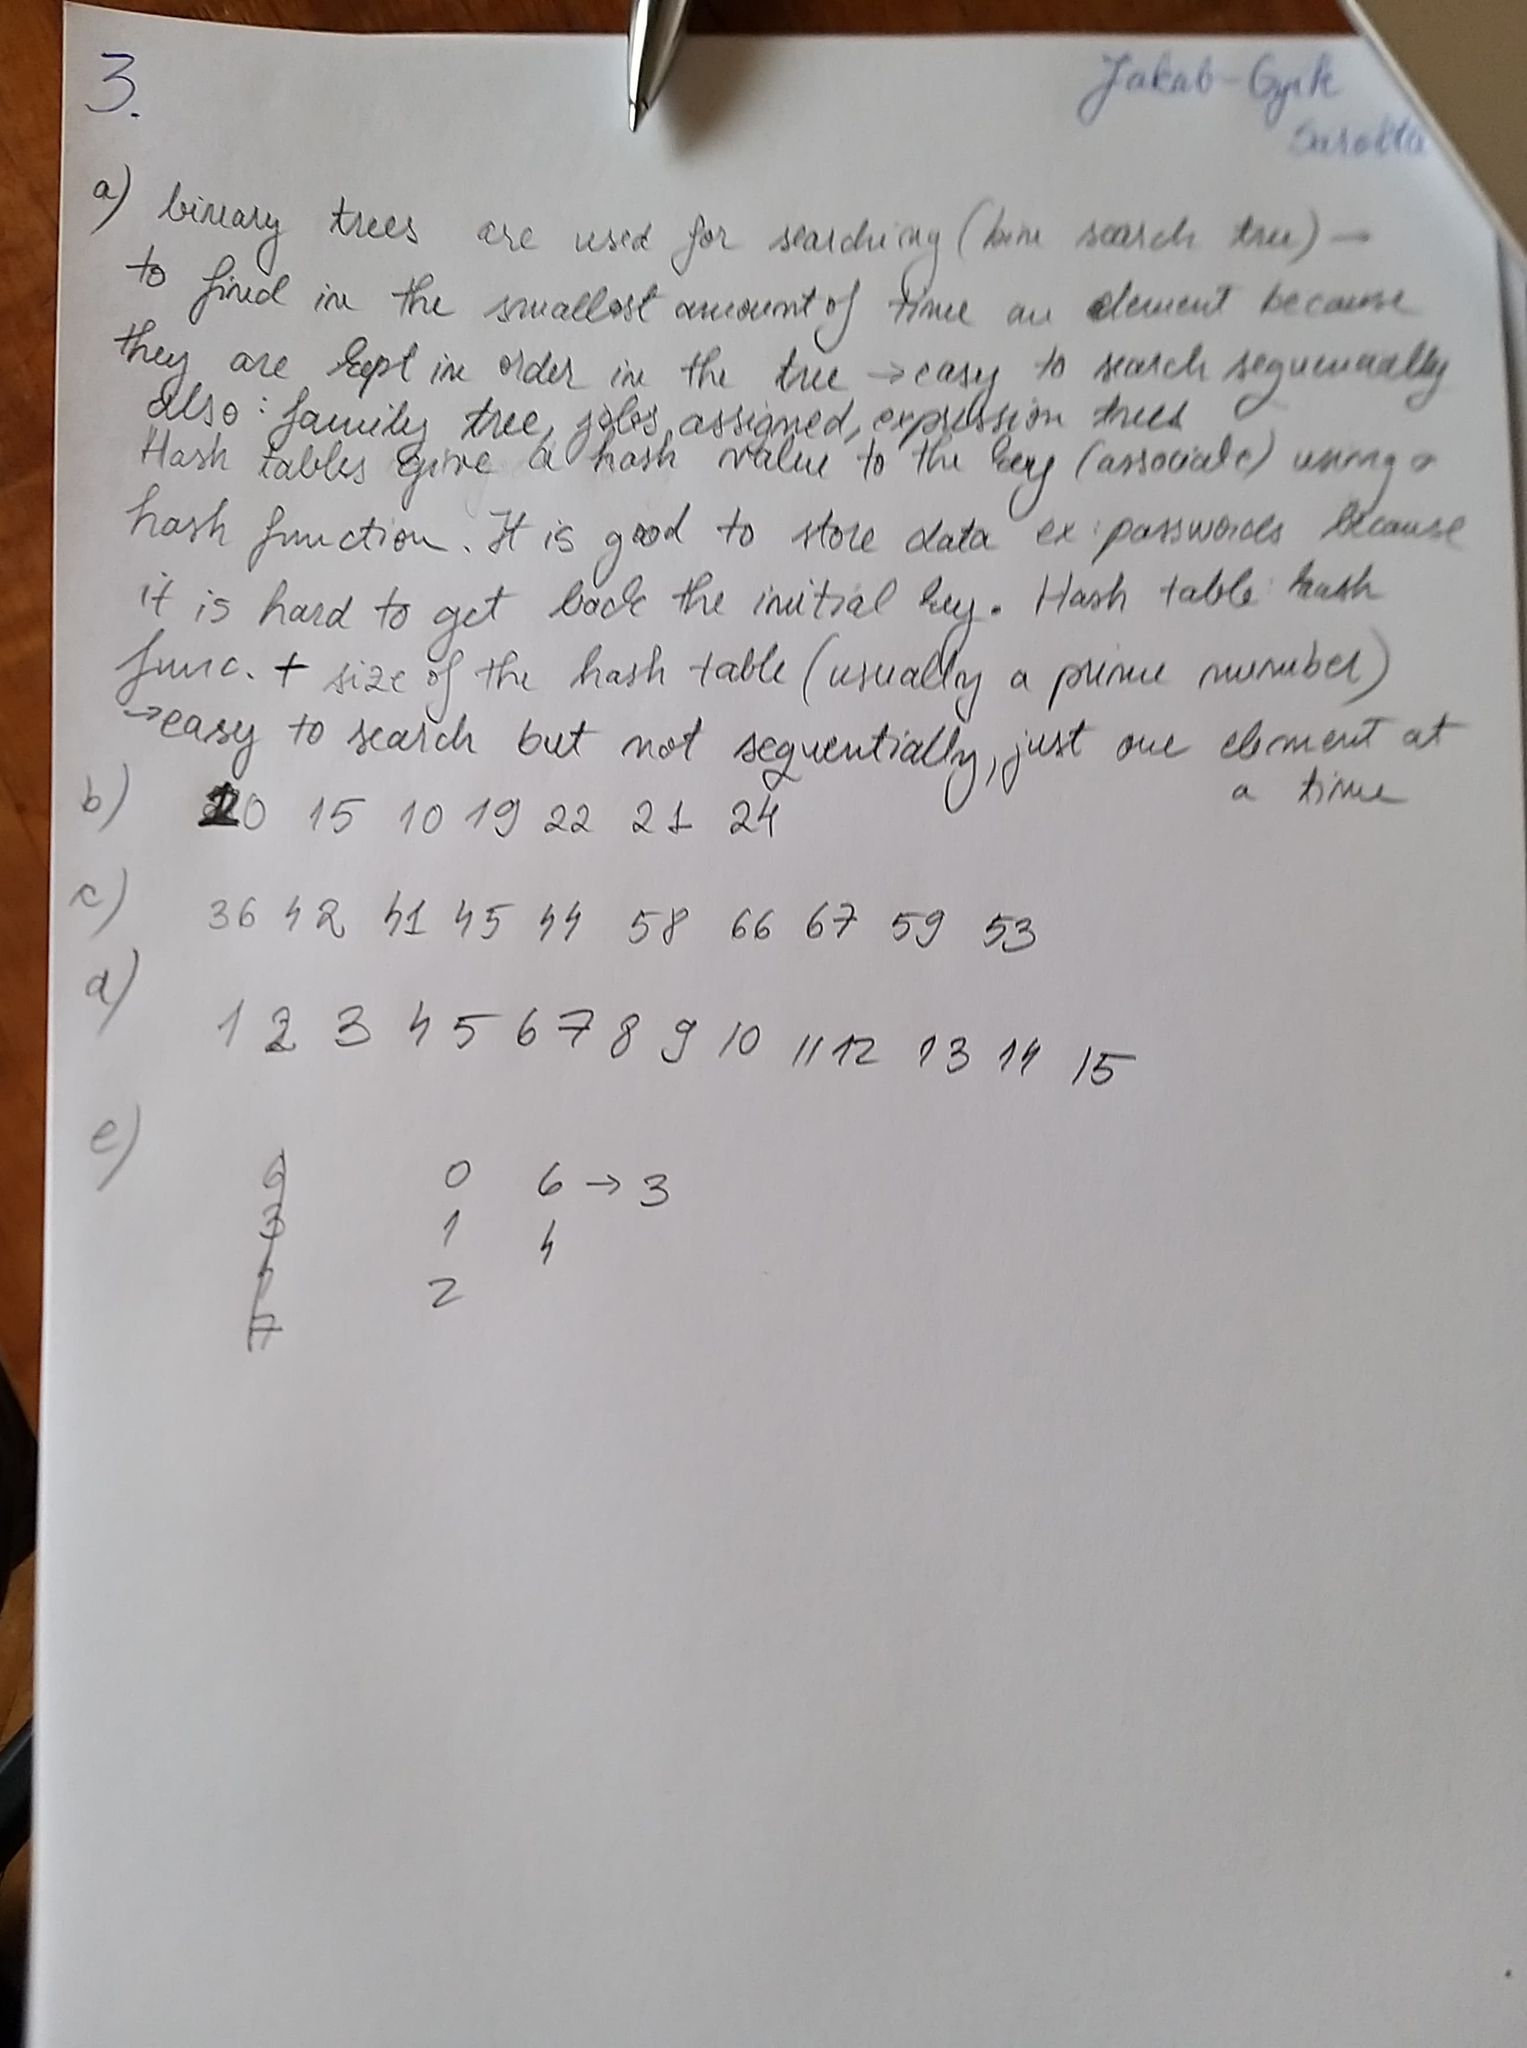 3.
Jakab-Gyik
Sarolta
a) binary trees are used for searching (bin search tree) →
to find in the smallest amount of time an element because
they are kept in order in the tree → easy to search sequentially
also: family tree, jobs assigned, expression trees
Hash tables give a hash value to the key (associate) using a
hash function. It is good to store data ex: passwords because
it is hard to get back the initial key. Hash table: hash
func. + size of the hash table (usually a prime number)
→ easy to search but not sequentially, just one element at
a time
b) 20 15 10 19 22 21 24
c) 36 42 41 45 44 58 66 67 59 53
d) 1 2 3 4 5 6 7 8 9 10 11 12 13 14 15
e)
0 6 → 3
1 4
2